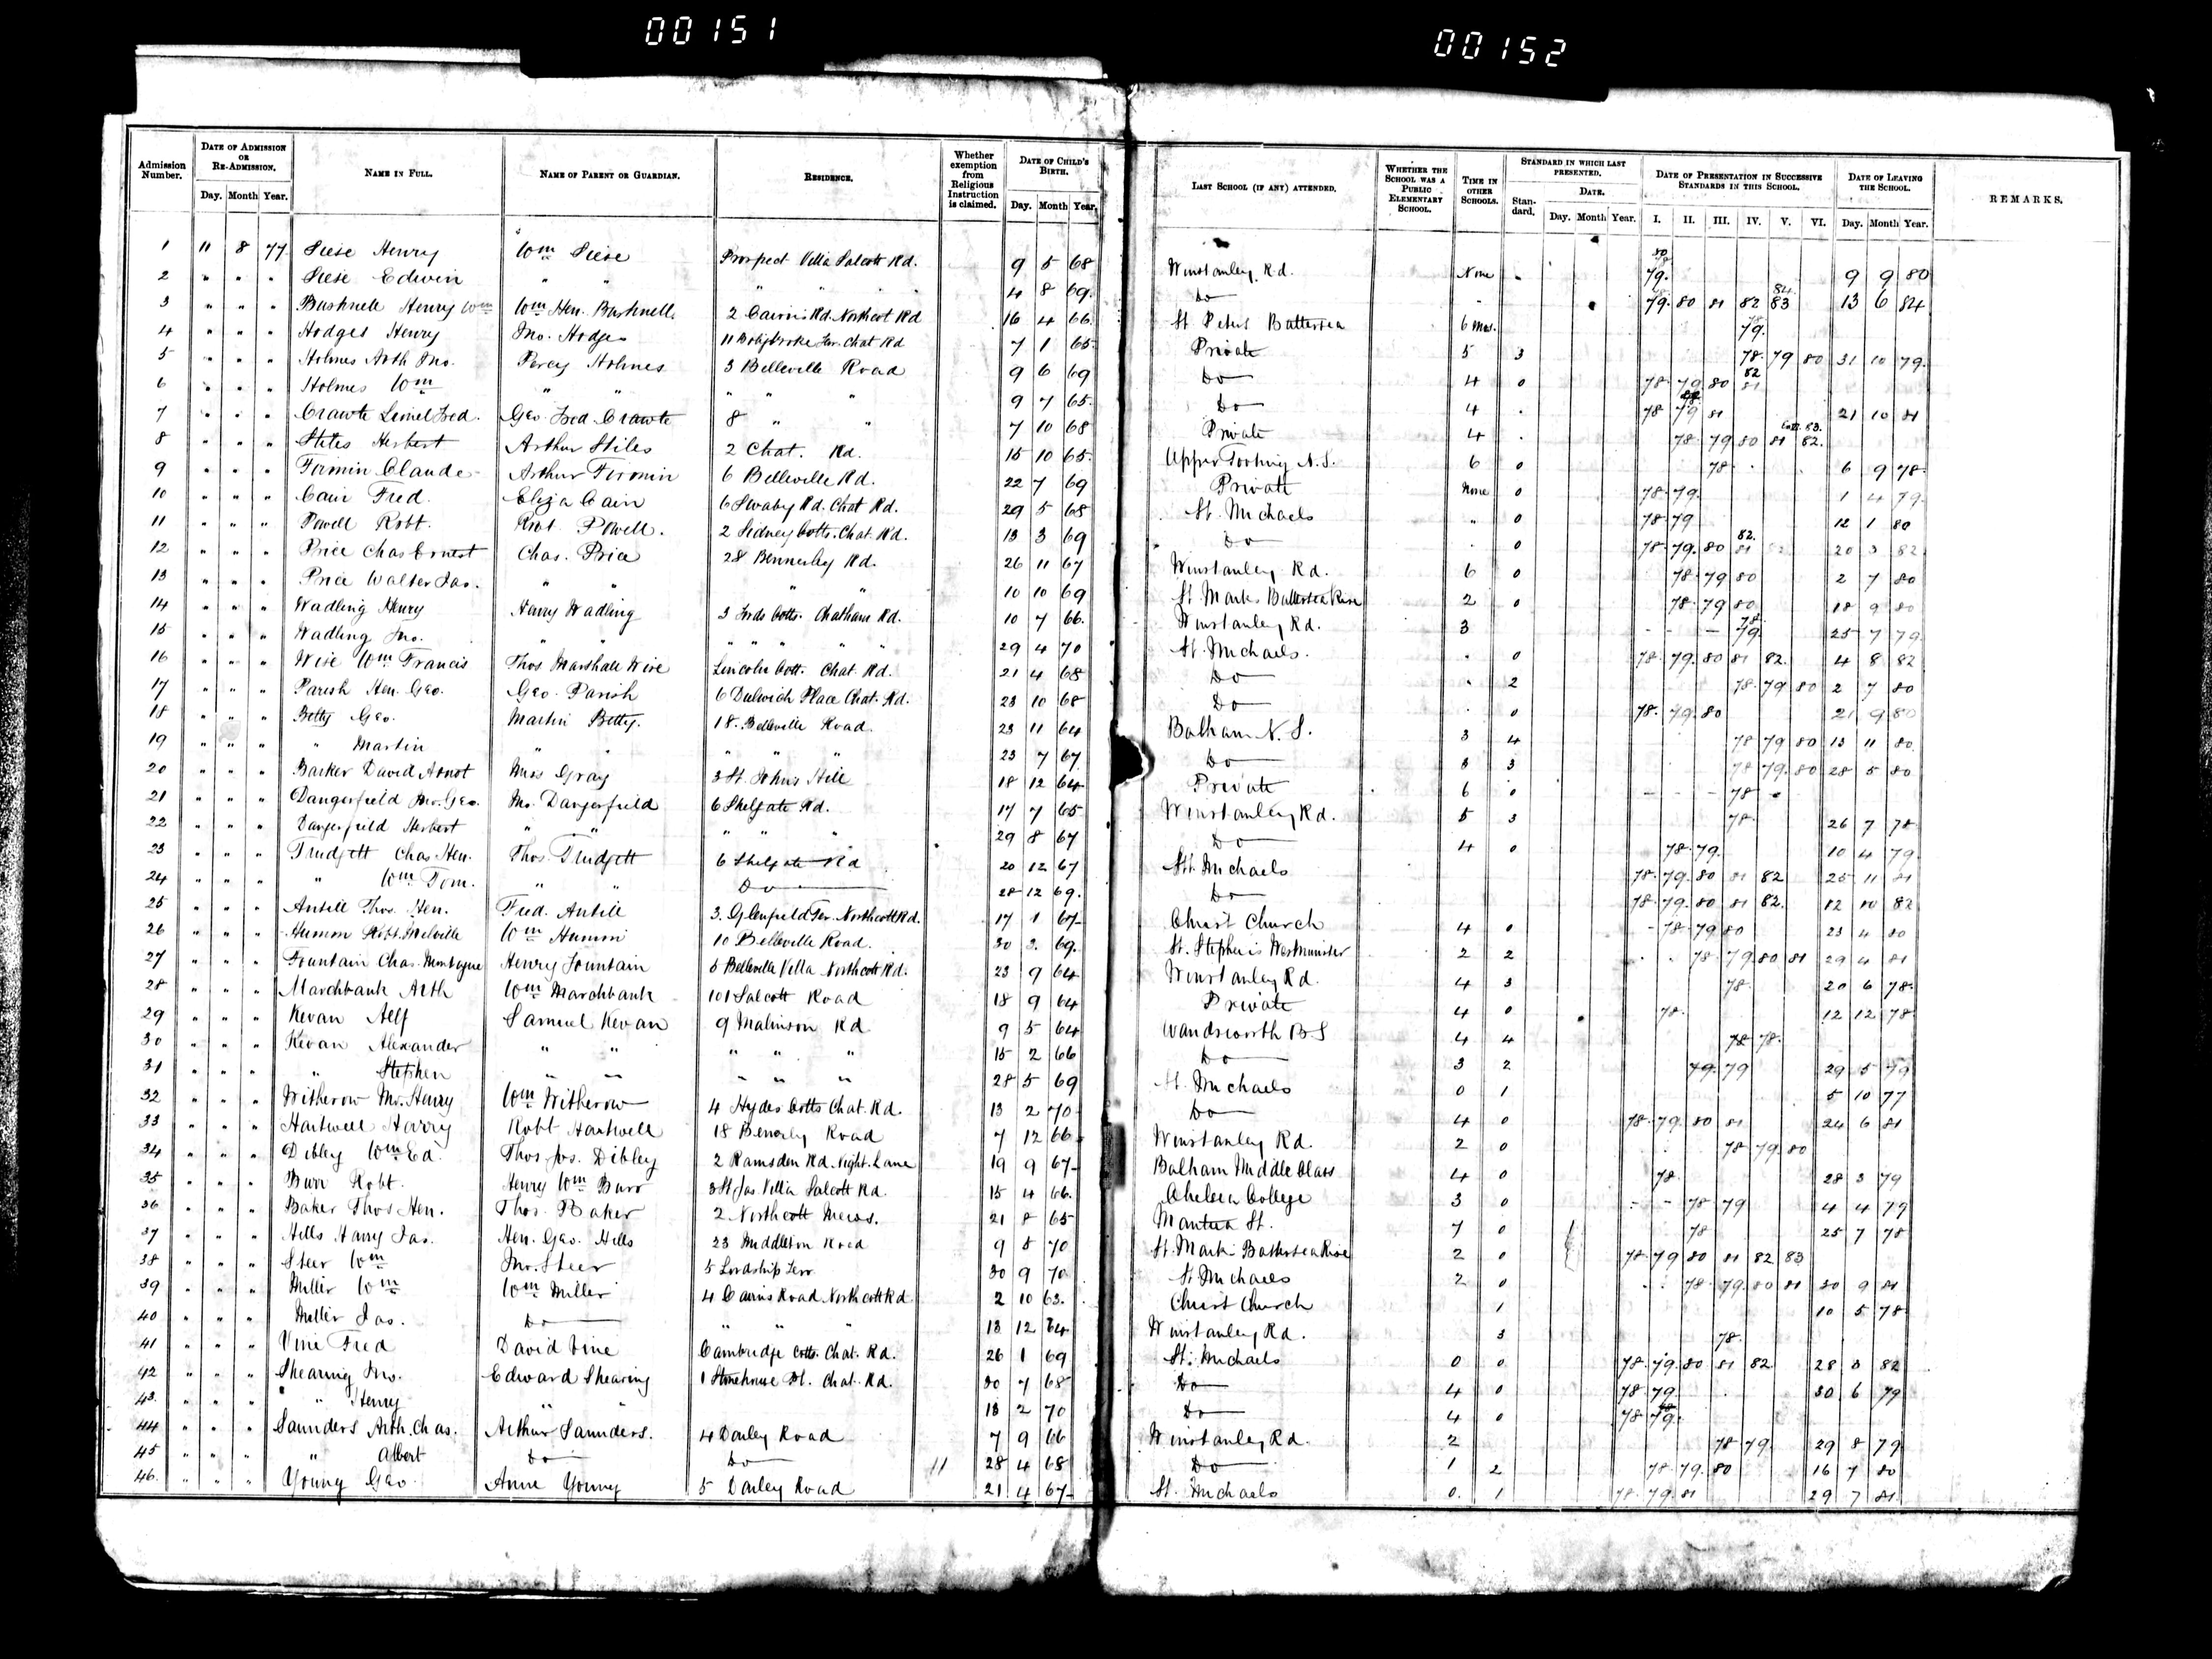 00151
00152
Admission Number.
DATE OF ADMISSION OR RE-ADMISSION.
Day. Month Year.
NAME IN FULL.
NAME OF PARENT OR GUARDIAN.
RESIDENCE.
Whether exemption from Religious Instruction is claimed.
DATE OF CHILD'S BIRTH.
Day. Month Year.
LAST SCHOOL (IF ANY) ATTENDED.
WHETHER THE SCHOOL WAS A PUBLIC ELEMENTARY SCHOOL.
TIME IN OTHER SCHOOLS.
STANDARD IN WHICH LAST PRESENTED.
Standard.
DATE.
Day. Month Year.
DATE OF PRESENTATION IN SUCCESSIVE STANDARDS IN THIS SCHOOL.
I. II. III. IV. V. VI.
DATE OF LEAVING THE SCHOOL.
Day. Month Year.
REMARKS.
1 11 8 77 Henry Wm Prospect Villa Salcott Rd. 9 5 68 Winstanley Rd. None 79. 9 9 80
2 " " " Edwin " " " " 4 8 69. Do 79. 80 81 82 83 13 6 84
3 " " " Bushnell Henry Wm Wm Hen. Bushnell 2 Cairns Rd. Northcot Rd 16 4 66 St Peters Battersea 6 Mos. 79.
4 " " " Hodges Henry Jno. Hodges 11 Bolingbroke Ter. Chat Rd 7 1 65 Private 5 3 78. 79 80 31 10 79.
5 " " " Holmes Arth Jno. Percy Holmes 3 Belleville Road 9 6 69 Do 4 0 78. 79 80 81
6 " " " Holmes Wm " " " " " 9 7 65 Do 4 78 79 81 21 10 81
7 " " " Crawte Fred. Geo. Fred Crawte 8 " " 7 10 68 Private 4 78 79 80 81 82.
8 " " " Stiles Herbert Arthur Stiles 2 Chat. Rd. 15 10 65 Upper Tooting N.S. 6 0 78 6 9 78.
9 " " " Firmin Claude Arthur Firmin 6 Belleville Rd. 22 7 69 Private None 0 78. 79. 1 4 79.
10 " " " Cain Fred. Eliza Cain 6 Swaby Rd. Chat Rd. 29 5 68 St. Michaels " 0 78. 79 12 1 80
11 " " " Powell Robt. Robt. Powell. 2 Sidney Cotts. Chat. Rd. 13 3 69 Do 0 78. 79. 80 81 82 20 3 82
12 " " " Price Chas Ernest Chas. Price 28 Bennerley Rd. 26 11 67 Winstanley Rd. 6 0 78. 79 80 2 7 80
13 " " " Price Walter Jas. " " " " 10 10 69 St. Marks Battersea Rise 2 0 78. 79 80 18 9 80
14 " " " Wadling Henry Harry Wadling 3 Fords Cotts. Chatham Rd. 10 7 66. Winstanley Rd. 3 79. 25 7 79
15 " " " Wadling Jno. " " " " " " 29 4 70 St. Michaels. 0 78. 79. 80 81 82. 4 8 82
16 " " " Wise Wm Francis Thos Marshall Wise Lincoln Cott. Chat. Rd. 21 4 68 Do 2 78. 79 80 2 7 80
17 " " " Parish Hen. Geo. Geo. Parish 6 Dulwich Place Chat. Rd. 23 10 68 Do 0 78. 79. 80 21 9 80
18 " " " Betty Geo. Martin Betty. 18. Belleville Road. 23 11 64 Balham N. S. 3 4 78 79 80 13 11 80
19 " " " " Martin " " " " " 23 7 67 Do 3 3 78 79. 80 28 5 80
20 " " " Barker David Arnot Miss Gray 3 St. Johns Hill 18 12 64 Private 6 0 78
21 " " " Dangerfield Jno. Geo. Jno. Dangerfield 6 Shelgate Rd. 17 7 65 Winstanley Rd. 5 3 78. 26 7 78
22 " " " Dangerfield Herbert " " " " " 29 8 67 Do 4 0 78. 79. 10 4 79.
23 " " " Trudgett Chas. Hen. Thos. Trudgett 6 Shelgate Rd 20 12 67 St. Michaels 78. 79. 80 81 82 25 11 81
24 " " " " Wm Tom. " " Do 28 12 69. Do 78. 79. 80 81 82. 12 10 82
25 " " " Antill Thos. Hen. Fred. Antill 3. Glenfield Ter. Northcott Rd. 17 1 67 Christ Church 4 0 78. 79 80 23 4 80
26 " " " Humm Robt. Melville Wm Humm 10 Belleville Road. 30 3. 69. St. Stephen's Westminster 2 2 78 79 80 81 29 4 81
27 " " " Fountain Chas. Montague Henry Fountain 5 Belleville Villa Northcott Rd. 23 9 64 Winstanley Rd. 4 3 78. 20 6 78.
28 " " " Marchbank Arth Wm Marchbank 101 Salcott Road 18 9 64 Private 4 0 78. 12 12 78
29 " " " Kevan Alf Samuel Kevan 9 Malinson Rd 9 5 64 Wandsworth B S 4 4 78 78.
30 " " " Kevan Alexander " " " " " 15 2 66 Do 3 2 79. 79 29 5 79
31 " " " " Stephen " " " " " 28 5 69 St. Michaels 0 1 5 10 77
32 " " " Witherow Jno. Henry Wm Witherow 4 Hydes Cotts Chat. Rd. 13 2 70 Do 4 0 78. 79. 80 81 24 6 81
33 " " " Hartwell Harry Robt Hartwell 18 Benerley Road 7 12 66 Winstanley Rd. 2 0 78. 79. 80
34 " " " Dibley Wm Ed. Thos. Jos. Dibley 2 Ramsden Rd. Night. Lane 19 9 67 Balham Middle Class 4 0 78. 28 3 79
35 " " " Burr Robt. Henry Wm Burr 3 St Jas. Villa Salcott Rd. 15 4 66. Chelsea College 3 0 78 79 4 4 79
36 " " " Baker Thos Hen. Thos. Baker 2 Northcott Mews. 21 8 65 Mantua St. 7 0 78 25 7 78
37 " " " Hills Harry Jas. Hen. Geo. Hills 23 Middleton Road 9 5 70 St. Marks Battersea Rise 2 0 78. 79 80 81 82 83
38 " " " Steer Wm Jno. Steer 5 Lordship Terr. 30 9 70 St. Michaels 2 0 78 79. 80 81 30 9 81
39 " " " Miller Wm Wm Miller 4 Cairns Road Northcott Rd 2 10 63. Christ Church 1 10 5 78
40 " " " Miller Jas. Do " " " 13 12 64 Winstanley Rd. 3 78.
41 " " " Vine Fred David Vine Cambridge Cotts. Chat. Rd. 26 1 69 St. Michaels 0 0 78. 79. 80 81 82 28 3 82
42 " " " Shearing Jno. Edward Shearing 1 Stonehouse St. Chat. Rd. 30 7 68 Do 4 0 78 79 30 6 79
43. " " " " Henry " " 13 2 70 Do 4 0 78 79.
44 " " " Saunders Arth. Chas. Arthur Saunders. 4 Darley Road 7 9 66 Winstanley Rd. 2 78 79. 29 8 79
45 " " " " Albert Do Do 28 4 68 Do 1 2 78 79. 80 16 7 80
46. " " " Young Geo. Anne Young 5 Darley Road 21 4 67 St. Michaels 0. 1 78. 79. 81 29 7 81